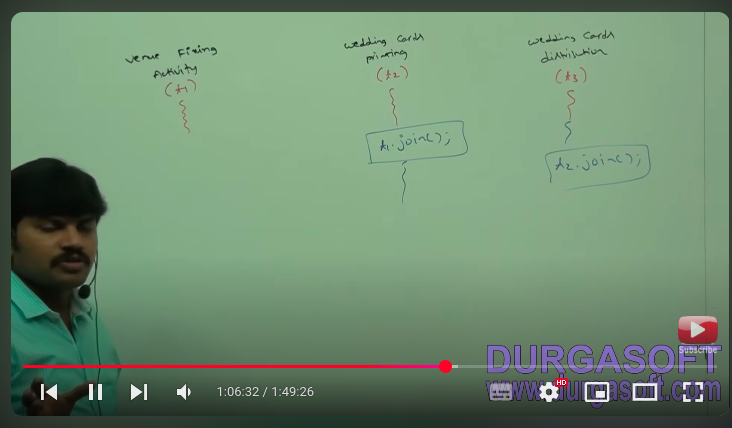 Venue Fixing
Activity
(t1)
Wedding Cards
printing
(t2)
t1.join();
Wedding Cards
distribution
(t3)
t2.join();
Subscribe
DURGASOFT
www.durgasoft.com
1:06:32 / 1:49:26
HD